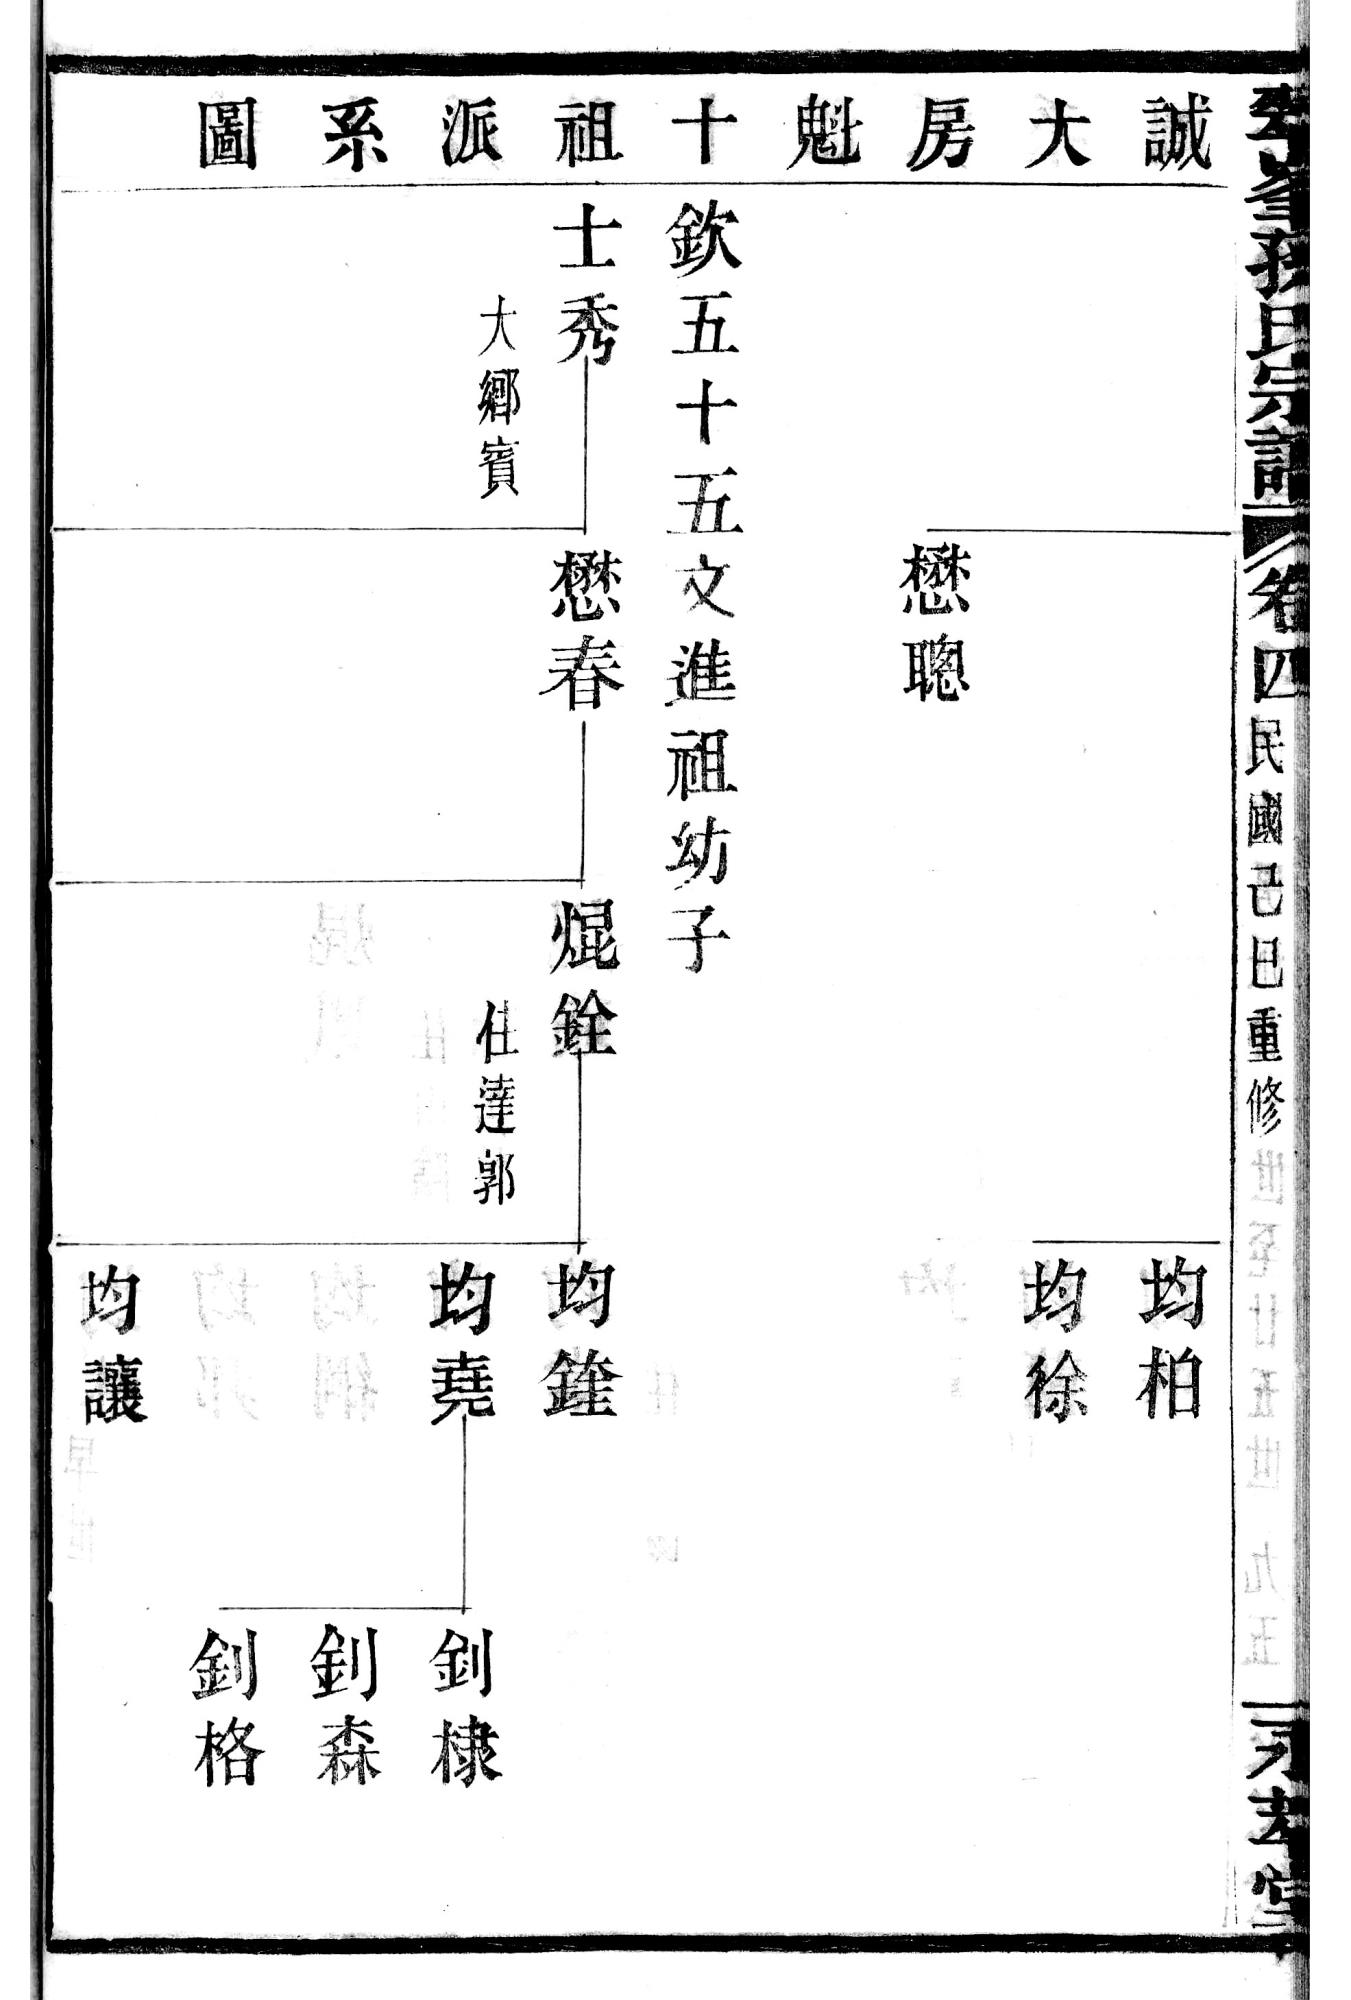 孫氏宗譜
卷四
民國己巳重修
誠大房魁十祖派系圖
懋聰
均柏
均徐
欽五十五文進祖幼子
士秀
大鄉賓
懋春
焜銓
仕達郭
均鍷
均堯
均讓
釗棣
釗森
釗格